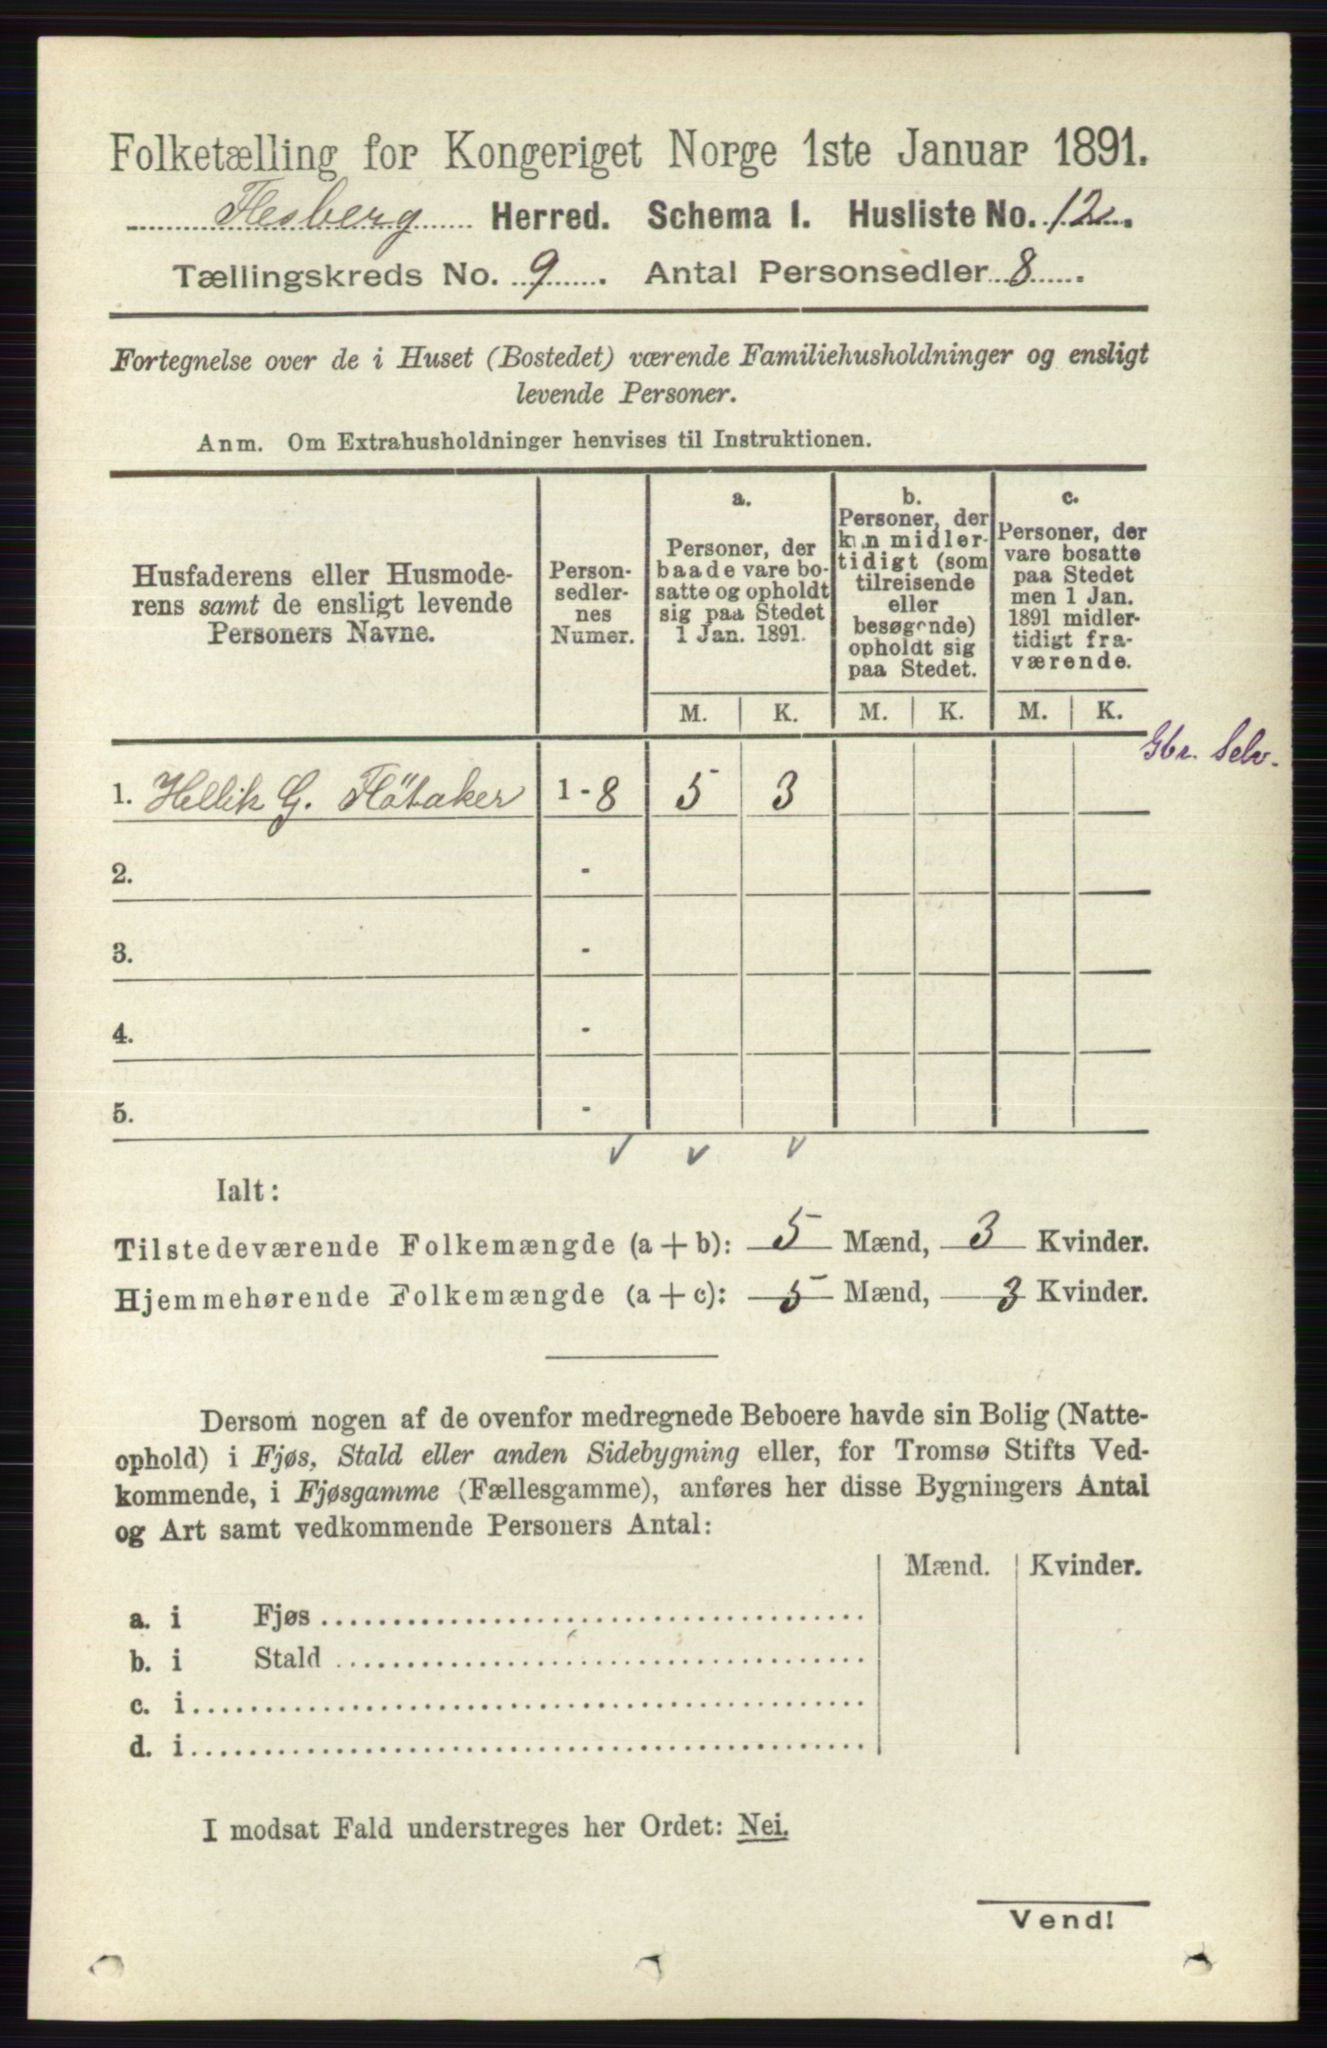 Folketælling for Kongeriget Norge 1ste Januar 1891.
Flesberg Herred. Schema I. Husliste No. 12.
Tællingskreds No. 9. Antal Personsedler 8.
Fortegnelse over de i Huset (Bostedet) værende Familiehusholdninger og ensligt
levende Personer.
Anm. Om Extrahusholdninger henvises til Instruktionen.
Husfaderens eller Husmode-
rens samt de ensligt levende
Personers Navne.
Person-
sedler-
nes
Numer.
a.
Personer, der
baade vare bo-
satte og opholdt
sig paa Stedet
1 Jan. 1891.
b.
Personer, der
kun midler-
tidigt (som
tilreisende
eller
besøgende)
opholdt sig
paa Stedet.
c.
Personer, der
vare bosatte
paa Stedet
men 1 Jan.
1891 midler-
tidigt fra-
værende.
M. K. M. K. M. K.
Gbr. Selv.
1. Hellik G. Flötaker 1 - 8 5 3
2. -
3. -
4. -
5. -
Ialt:
Tilstedeværende Folkemængde (a + b): 5 Mænd, 3 Kvinder.
Hjemmehørende Folkemængde (a + c): 5 Mænd, 3 Kvinder.
Dersom nogen af de ovenfor medregnede Beboere havde sin Bolig (Natte-
ophold) i Fjøs, Stald eller anden Sidebygning eller, for Tromsø Stifts Ved-
kommende, i Fjøsgamme (Fællesgamme), anføres her disse Bygningers Antal
og Art samt vedkommende Personers Antal:
Mænd. Kvinder.
a. i Fjøs
b. i Stald
c. i
d. i
I modsat Fald understreges her Ordet: Nei.
Vend!